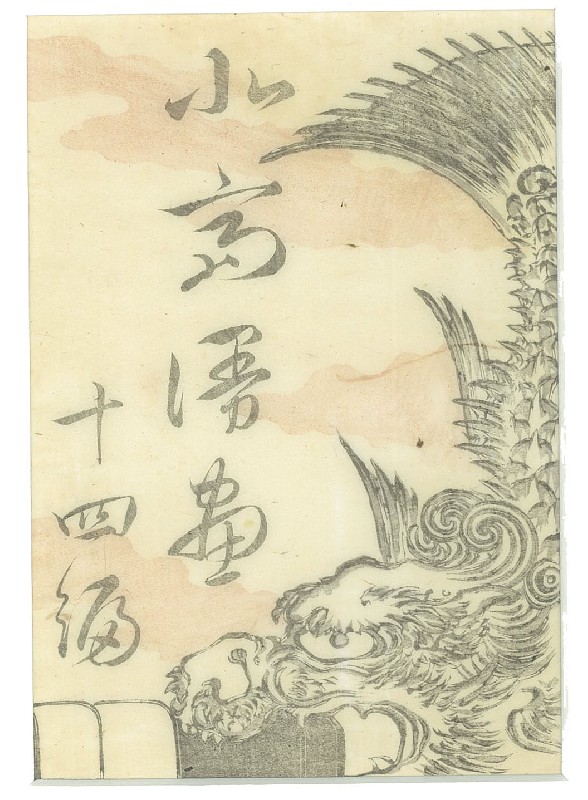 北斎漫畫
十四編